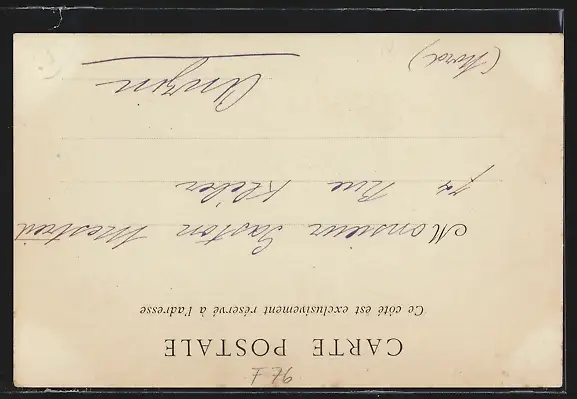 CARTE POSTALE
Ce côté est exclusivement réservé à l'adresse
Monsieur Gaston
Rue Kléber
Anzin
(Nord)